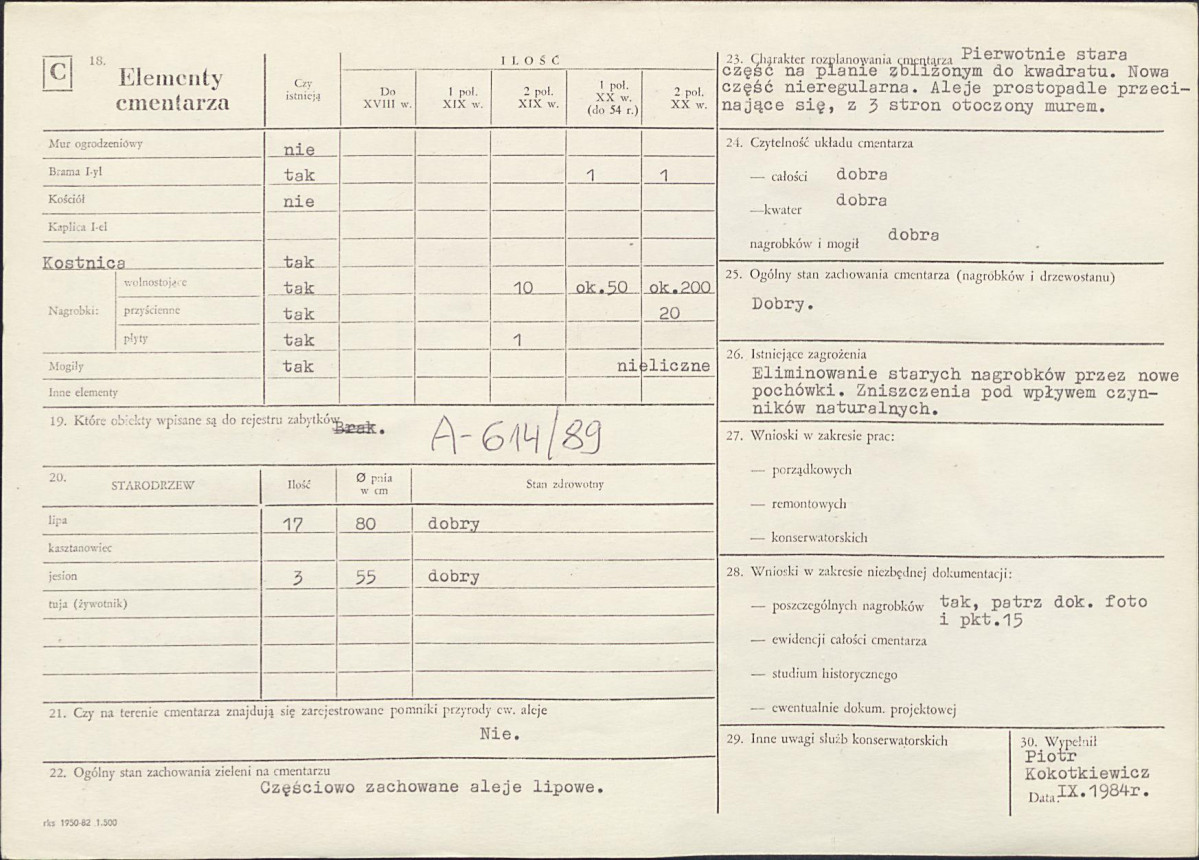 C
18. Elementy
cmentarza
Czy
istnieją
ILOŚĆ
Do
XVIII w.
1 poł.
XIX w.
2 poł.
XIX w.
1 poł.
XX w.
(do 54 r.)
2 poł.
XX w.
Mur ogrodzeniówy nie
Brama I-yl tak 1 1
Kościół nie
Kaplica I-el
Kostnica tak
Nagrobki: wolnostojące tak 10 ok.50 ok.200
przyścienne tak 20
płyty tak 1
Mogiły tak nieliczne
Inne elementy
19. Które obiekty wpisane są do rejestru zabytków Brak. A-614/89
20. STARODRZEW Ilość Ø pnia
w cm Stan zdrowotny
lipa 17 80 dobry
kasztanowiec
jesion 3 55 dobry
tuja (żywotnik)
21. Czy na terenie cmentarza znajdują się zarejestrowane pomniki przyrody ew. aleje
Nie.
22. Ogólny stan zachowania zieleni na cmentarzu
Częściowo zachowane aleje lipowe.
rks 1950-82 1.500
23. Charakter rozplanowania cmentarza Pierwotnie stara
część na planie zbliżonym do kwadratu. Nowa
część nieregularna. Aleje prostopadle przeci-
nające się, z 3 stron otoczony murem.
24. Czytelność układu cmentarza
— całości dobra
—kwater dobra
nagrobków i mogił dobra
25. Ogólny stan zachowania cmentarza (nagrobków i drzewostanu)
Dobry.
26. Istniejące zagrożenia
Eliminowanie starych nagrobków przez nowe
pochówki. Zniszczenia pod wpływem czyn-
ników naturalnych.
27. Wnioski w zakresie prac:
— porządkowych
— remontowych
— konserwatorskich
28. Wnioski w zakresie niezbędnej dokumentacji:
— poszczególnych nagrobków tak, patrz dok. foto
i pkt.15
— ewidencji całości cmentarza
— studium historycznego
— ewentualnie dokum. projektowej
29. Inne uwagi służb konserwatorskich
30. Wypełnił
Piotr
Kokotkiewicz
Data: IX.1984r.